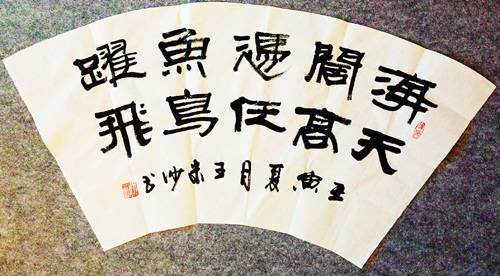 海闊憑魚躍
天高任鳥飛
壬寅夏月王沙书